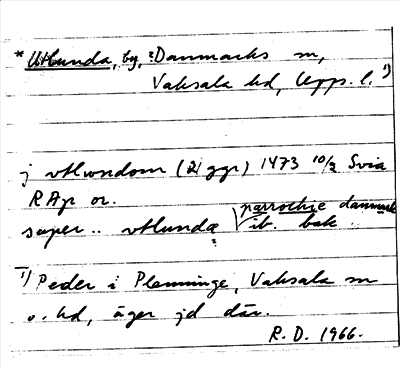 * Utlunda, by, ?Danmarks sn,
Vaksala hd, Upps. l. 1)
j vtlwndom (2 ggr) 1473 10/2 Svia
RAp or.
super .. vtlunda parrochie danmark
ib. bak ..
1) Peder i Plenninge, Vaksala sn
o. hd, äger jd där.
R. D. 1966.